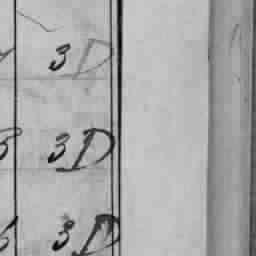 3 D
3 D
3 D